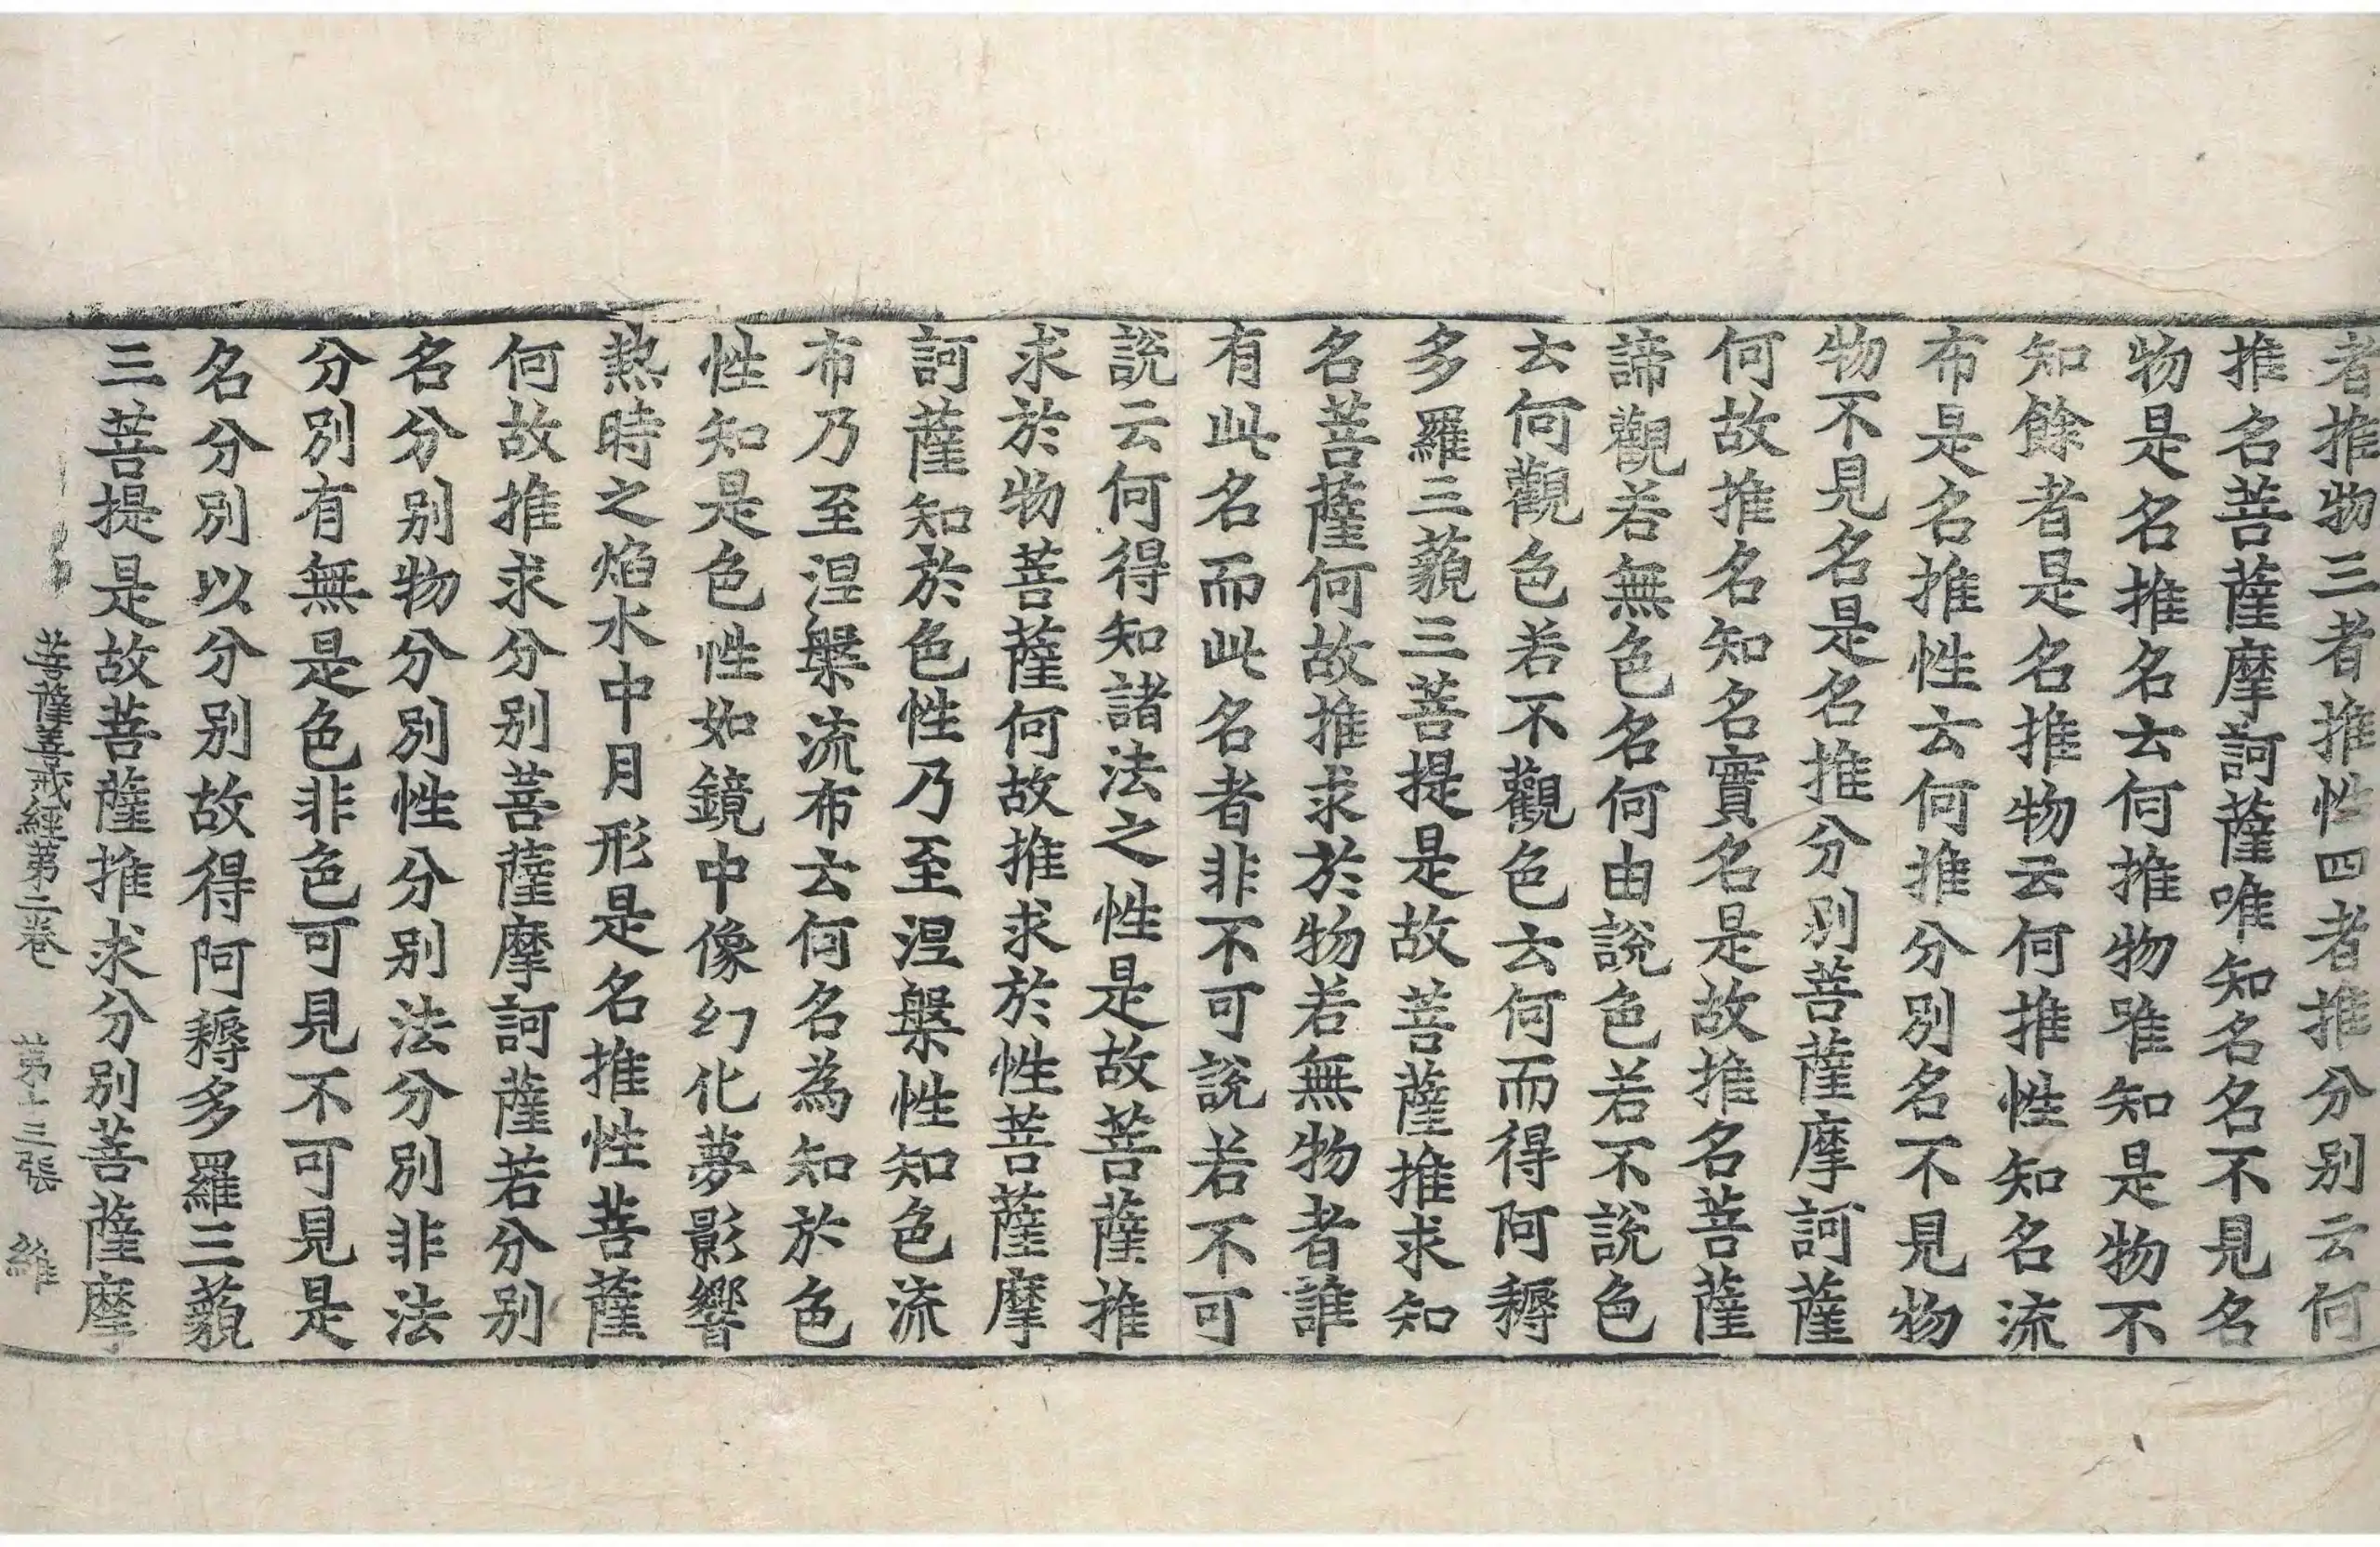 者推物三者推性四者推分别云何
推名菩薩摩訶薩唯知名名不見名
物是名推名云何推物唯知是物不
知餘者是名推物云何推性知名流
布是名推性云何推分别名不見物
物不見名是名推分别菩薩摩訶薩
何故推名知名實名是故推名菩薩
諦觀若無色名何由說色若不說色
云何觀色若不觀色云何而得阿耨
多羅三藐三菩提是故菩薩推求知
名菩薩何故推求於物若無物者誰
有此名而此名者非不可說若不可
說云何得知諸法之性是故菩薩推
求於物菩薩何故推求於性菩薩摩
訶薩知於色性乃至涅槃性知色流
布乃至涅槃流布云何名為知於色
性知是色性如鏡中像幻化夢影響
熱時之焰水中月形是名推性菩薩
何故推求分别菩薩摩訶薩若分别
名分别物分别性分别法分别非法
分别有無是色非色可見不可見是
名分别以分别故得阿耨多羅三藐
三菩提是故菩薩推求分别菩薩摩
菩薩善戒經第二卷 第十三張 維